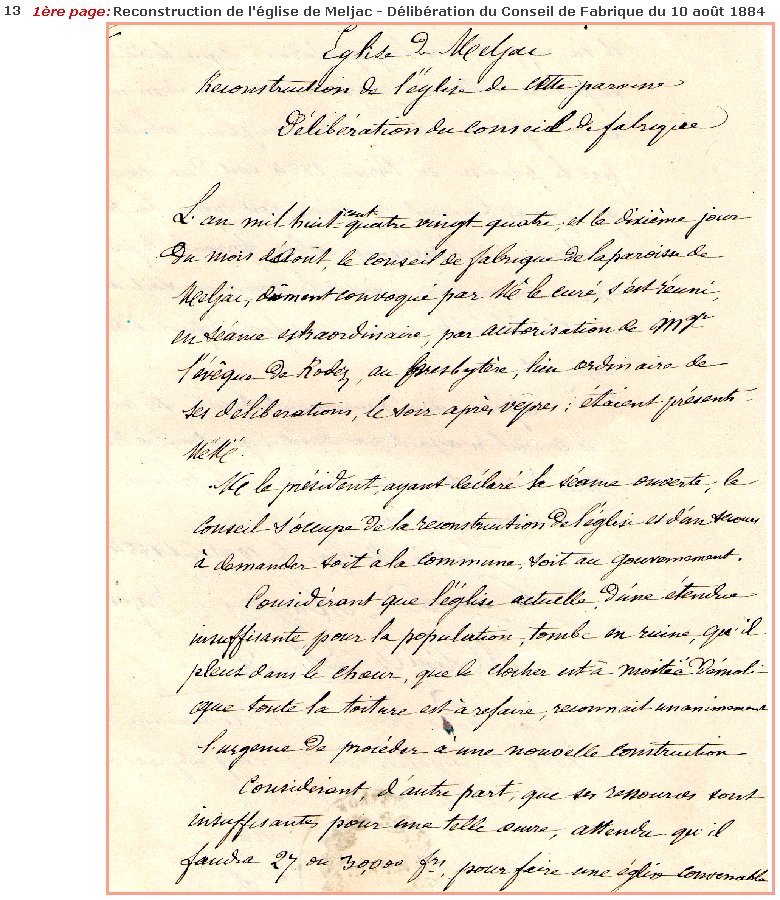 13 1ère page: Reconstruction de l'église de Meljac - Délibération du Conseil de Fabrique du 10 août 1884
Eglise de Meljac
Reconstruction de l'église de cette paroisse
Délibération du conseil de fabrique
L'an mil huit cent quatre vingt quatre, et le dixième jour
du mois d'Août, le conseil de fabrique de la paroisse de
Meljac, dûment convoqué par Mr le curé, s'est réuni,
en séance extraordinaire, par autorisation de Mgr
l'évêque de Rodez, au presbytère, lieu ordinaire de
ses délibérations, le soir après vêpres; étaient présents
MrMr
Mr le président, ayant déclaré la séance ouverte, le
Conseil s'occupe de la reconstruction de l'église et d'un secours
à demander soit à la commune, soit au gouvernement.
Considérant que l'église actuelle, d'une étendue
insuffisante pour la population, tombe en ruine, qu'il
pleut dans le chœur, que le clocher est à moitié démoli
que toute la toiture est à refaire, reconnait unanimement
l'urgence de procéder à une nouvelle construction
Considérant, d'autre part, que ses ressources sont
insuffisantes pour une telle œuvre, attendu qu'il
faudra 27 ou 30,000 frs, pour faire une église convenable